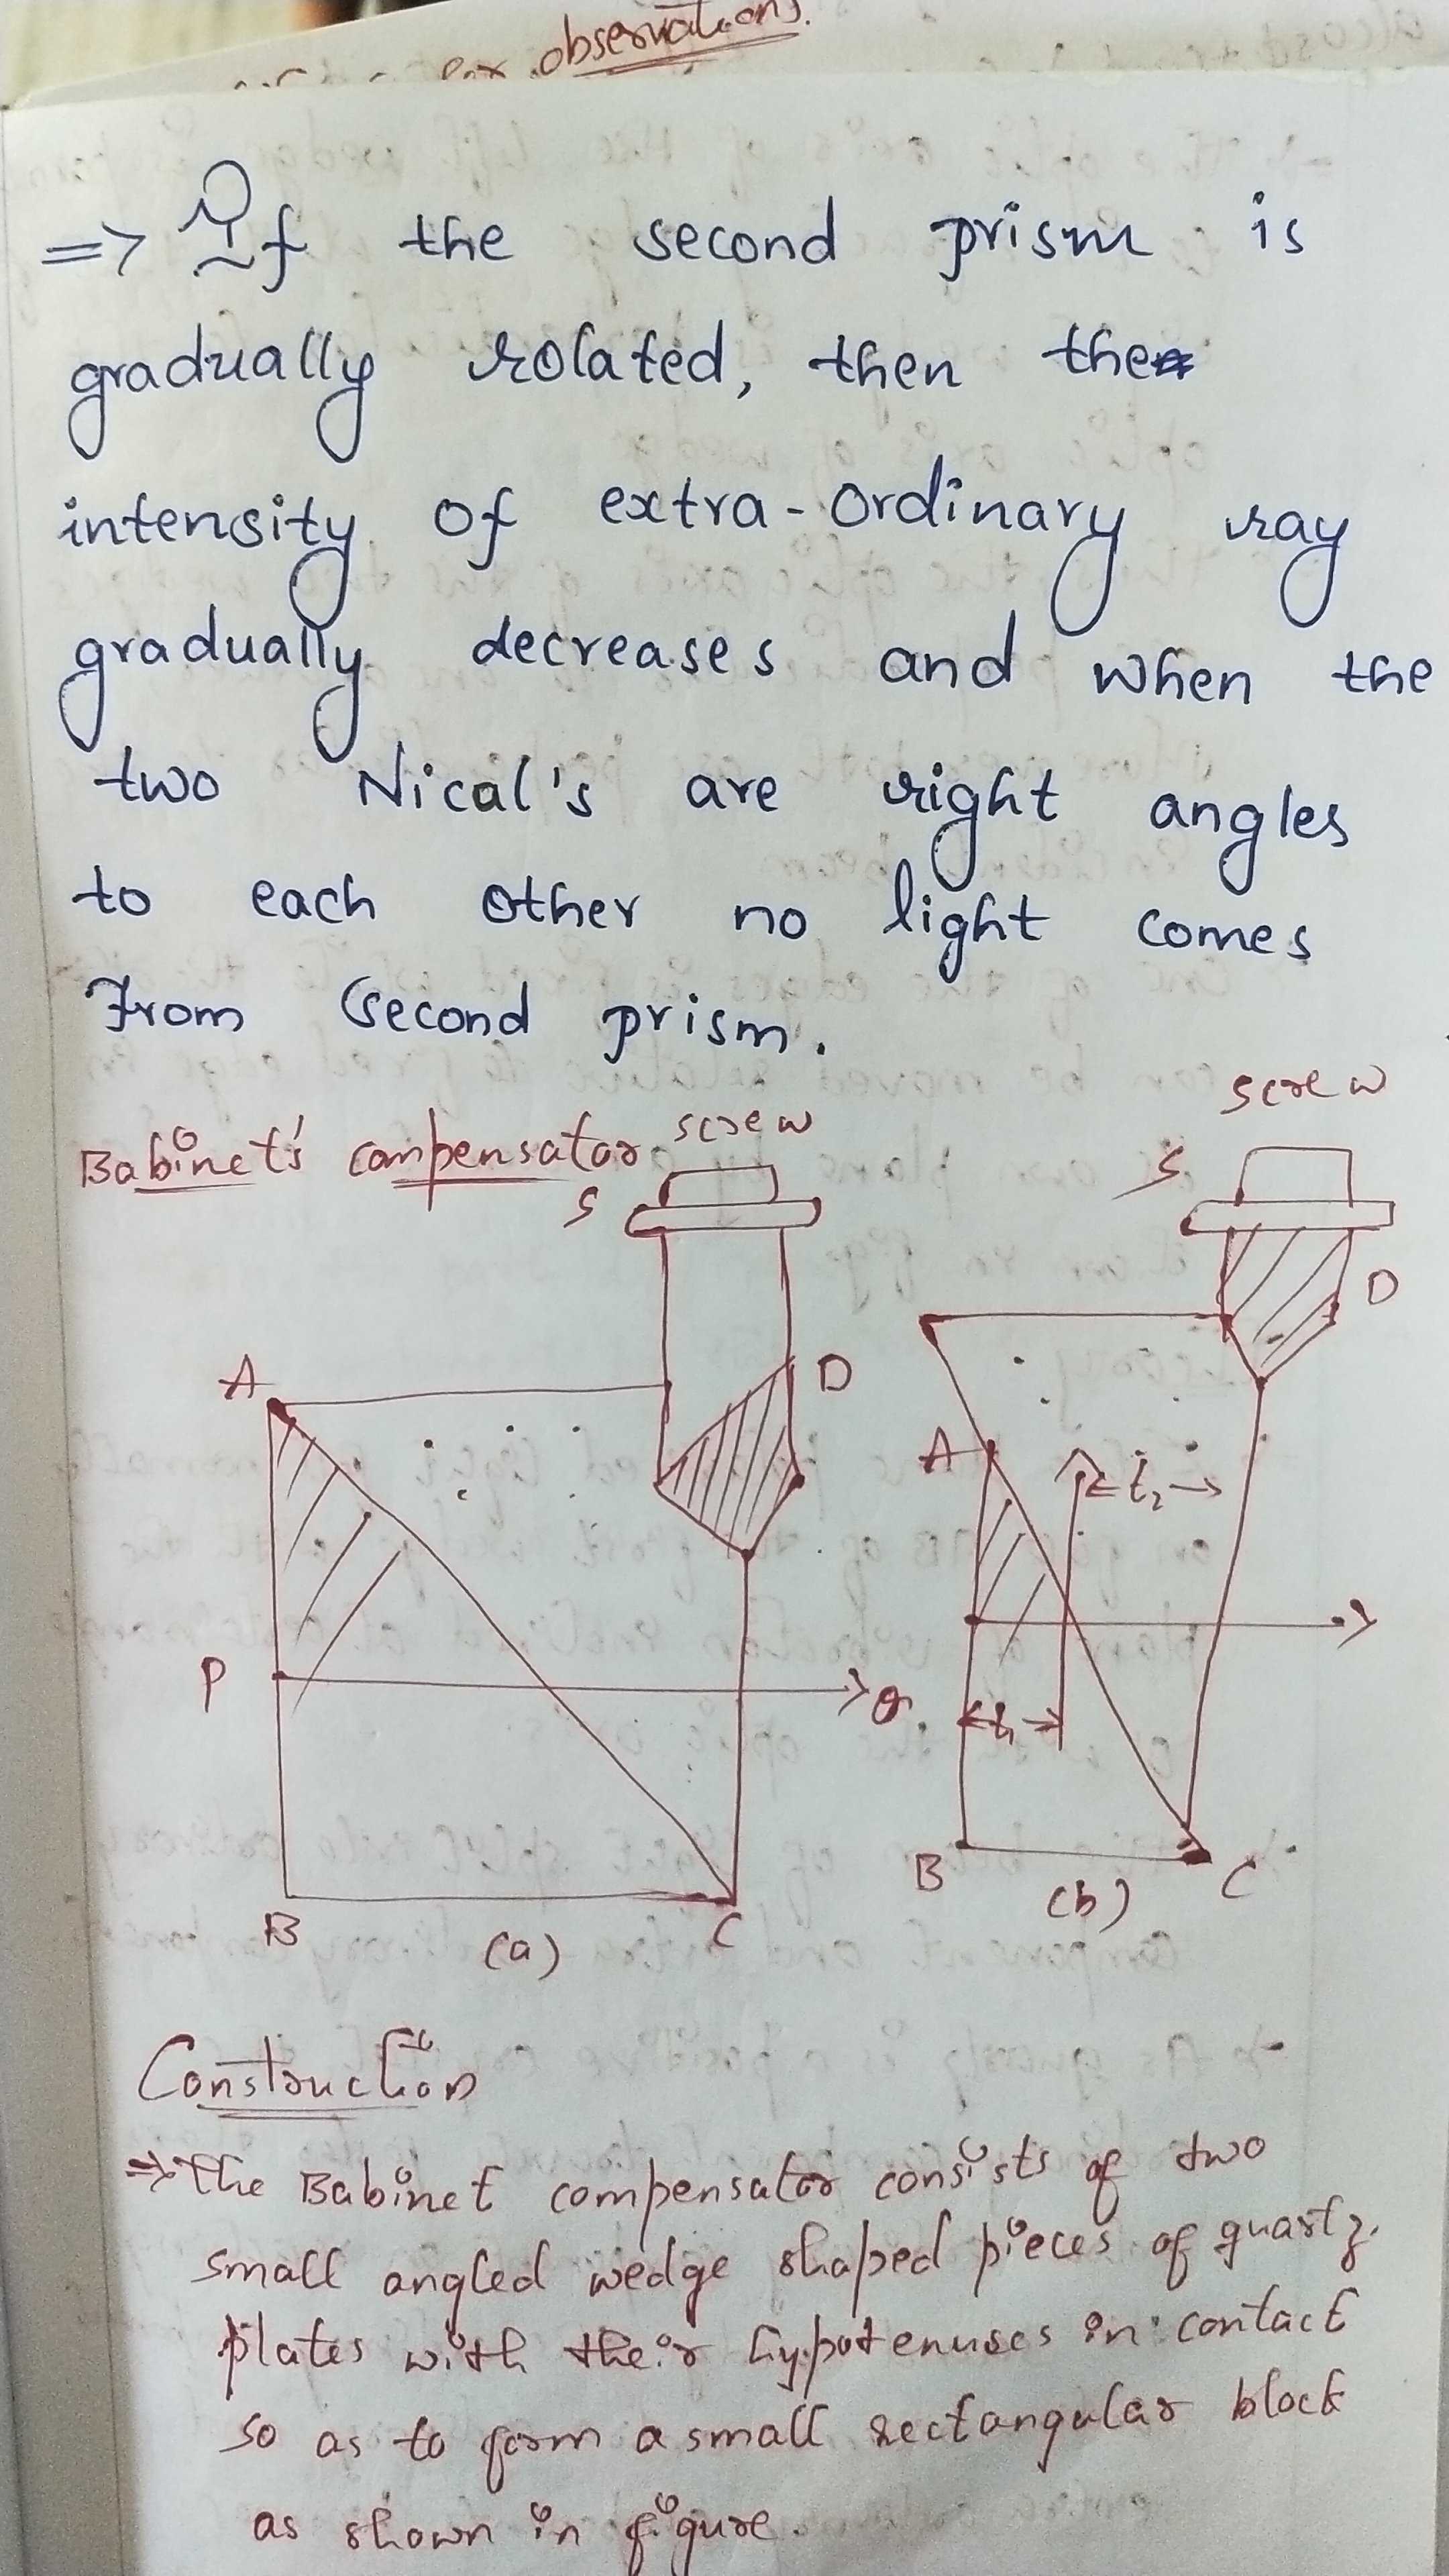 observations.
=> If the second prism is
gradually rotated, then the
intensity of extra-ordinary ray
gradually decreases and when the
two Nical's are right angles
to each other no light comes
From second prism.
Babinet's compensator
screw
S
screw
S
D
D
A
A
t₂
P
O
t₁
B
C
(a)
B
C
(b)
Construction
=> The Babinet compensator consists of two
small angled wedge shaped pieces of quartz
plates with their hypotenuses in contact
so as to form a small rectangular block
as shown in figure.